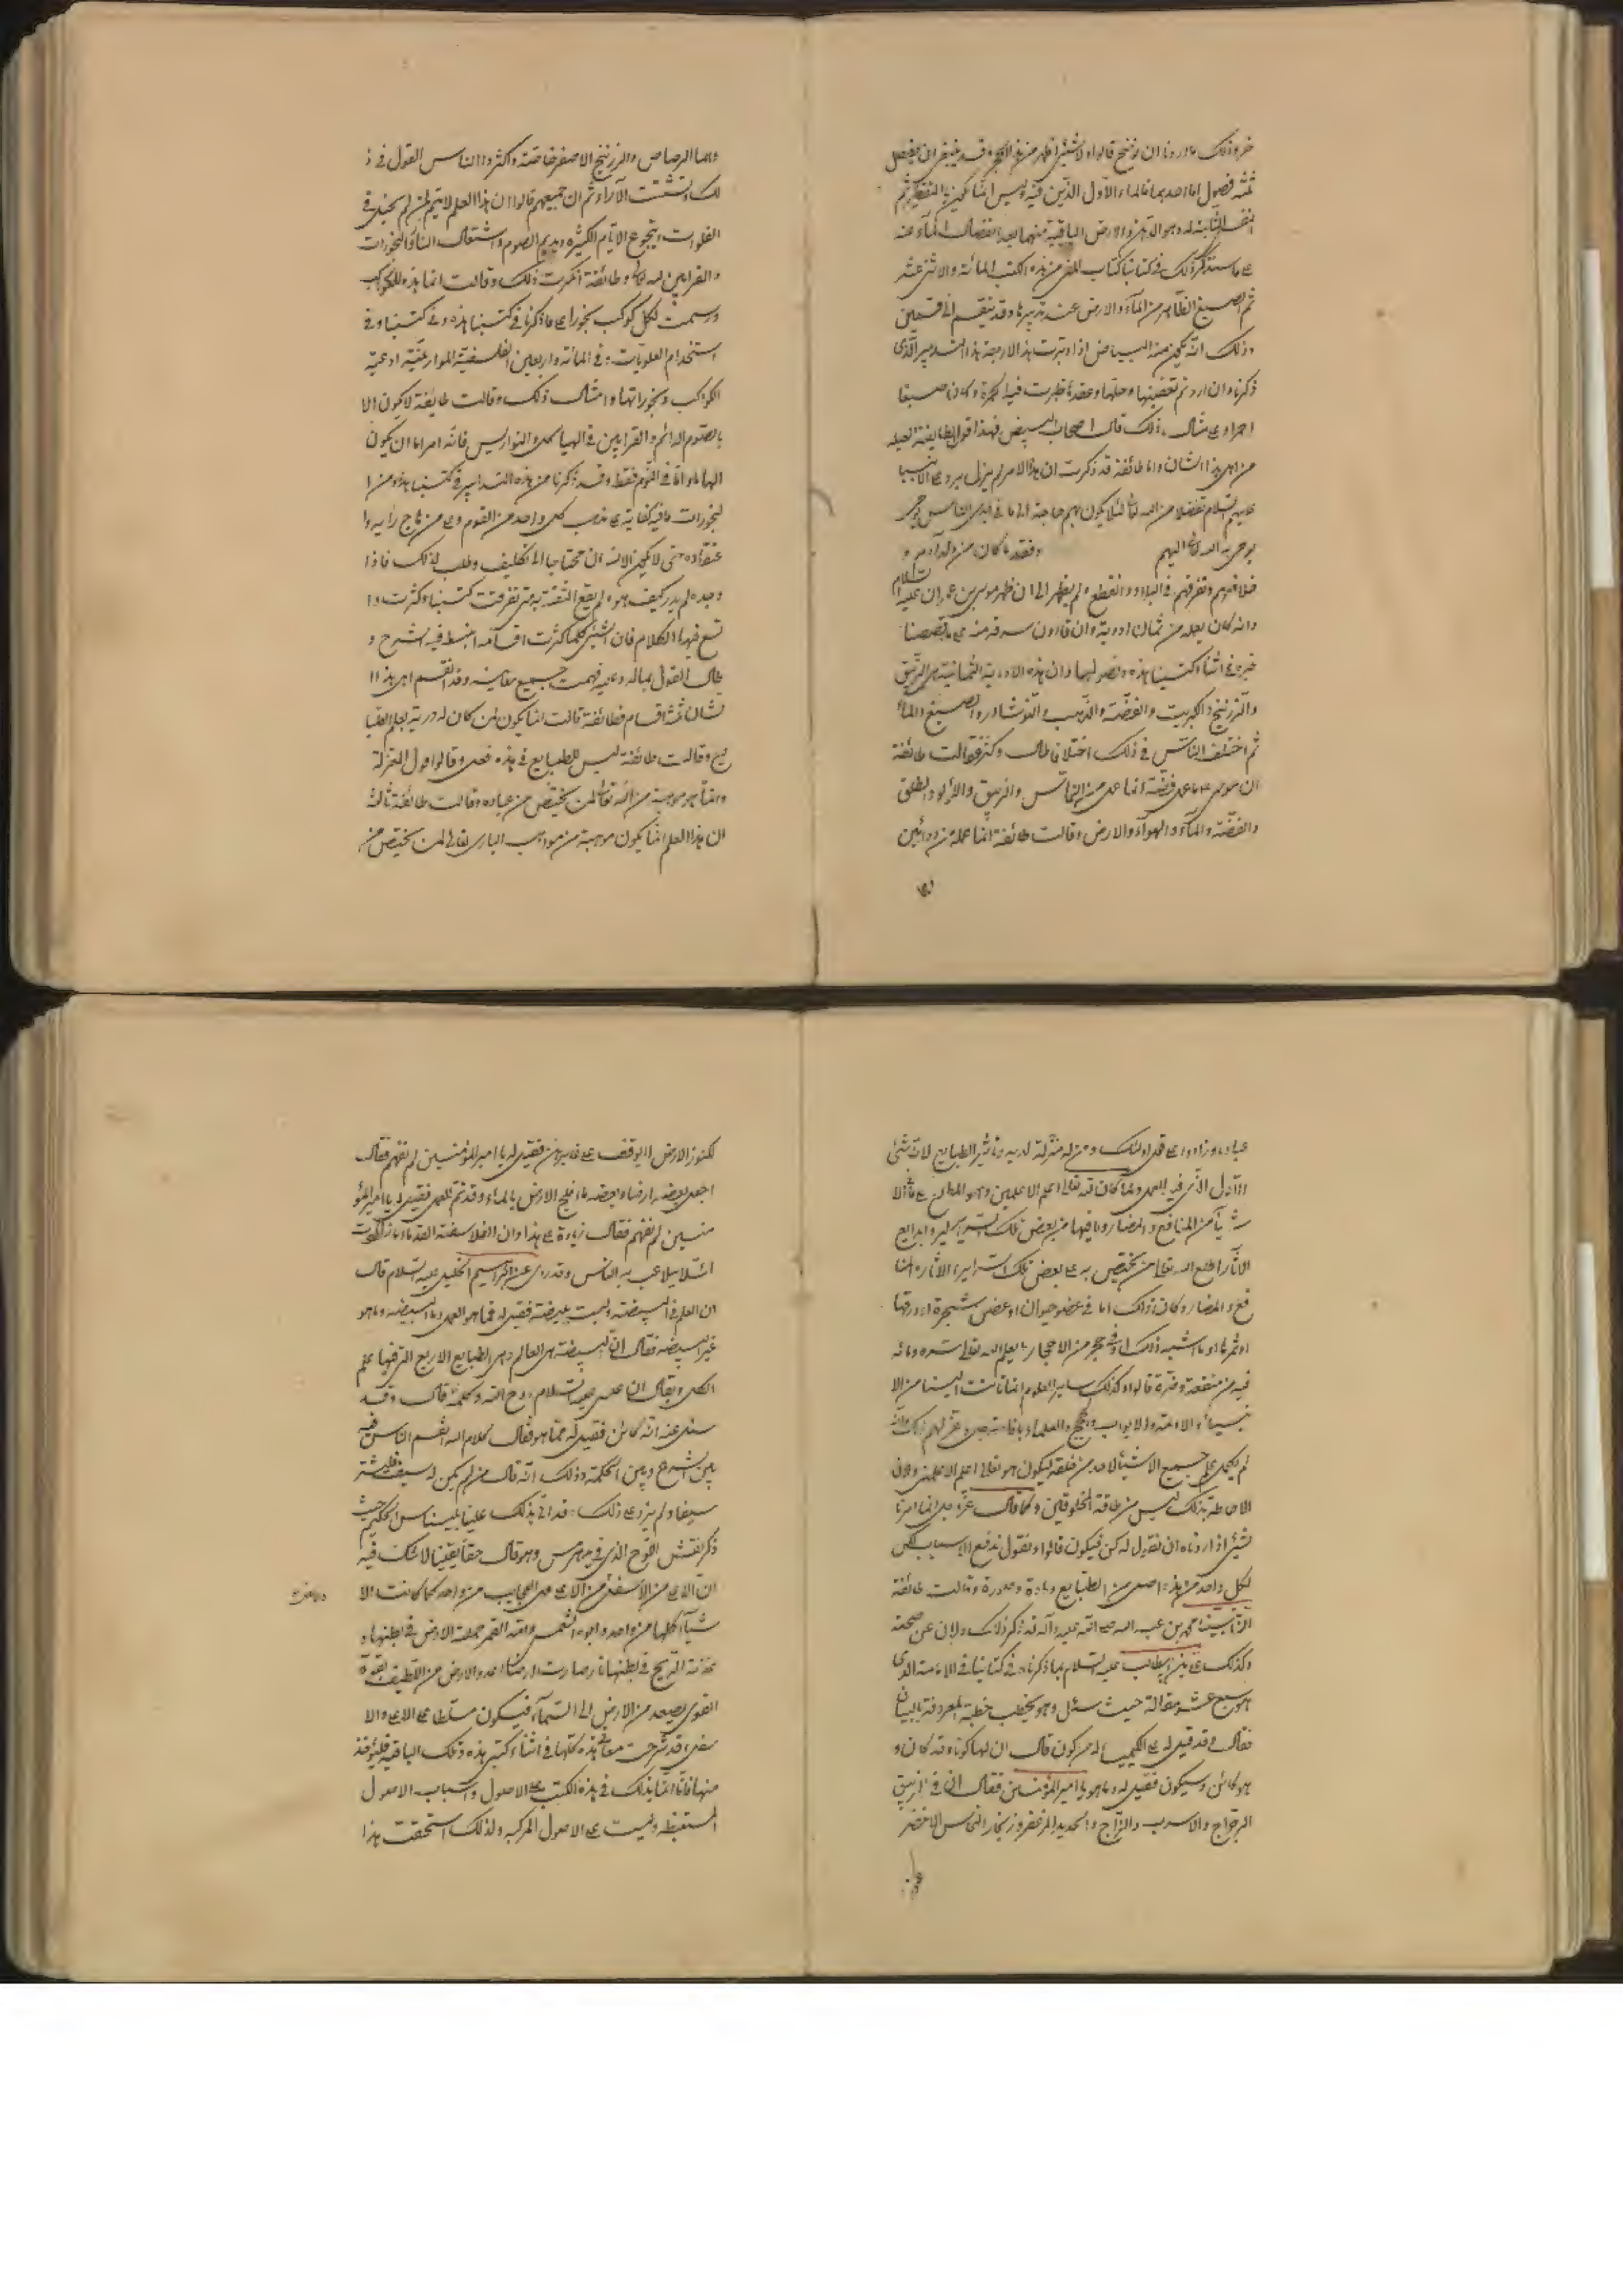 ثلثه فصول اما احدهما فالماء الأول الذي فيه وليس انما يكون بالتقطير ثم
على ما سنذكر ذلك في كتابنا كتاب من هذه الكتب المائة والاثنى عشر
ثم الصبغ الظاهر من الماء والارض عند تدبيرها وقد ينقسم الى قسمين
وذلك انه يكون منه البياض اذا دبرت هذه الاربعة هذا التدبير الذي
ذكرناه وان اردتم تعفينها وحلها وعقدها ظهرت فيه الحمرة وكان صبغا
احمر وعلى مثال ذلك قال اصحاب البيض فهذا قول طايفة
من اهل هذا الشان واما طائفة قد ذكرت ان هذا الامر لم يزل يروى على الانبيا
عليهم السلام تفضلا من الله تعالى لئلا يكون بهم حاجة الى ما في ايدي الناس
يوحى به الله تعالى اليهم وفقد ما كان من ولد آدم و
خلافهم وتفرقهم في البلاد وانقطع ولم يظهر الى ان ظهر موسى بن عمران عليه السلام
وانه كان يعمله من ثمان ادوية وان قارون سرقه منه على ما قصصنا
خبره في اثناء كتبنا هذه وفصولها وان هذه الادوية الثمانية هي الزيبق
والزرنيخ والكبريت والفضة والذهب والنوشادر والصبغ والماء
ثم اختلف الناس في ذلك اختلافا طال وكثر فقالت طائفة
ان موسى ما عمل فضة انما عمل من النحاس والزيبق واللؤلؤ والطلق
والفضة والماء والهواء والارض وقالت طائفة انما عمله من دوائين
وهما الرصاص والزرنيخ الاصفر خاصة واكثروا الناس القول في ذ
لك وتشتت الآراء ثم ان جميعهم قالوا ان هذا العلم لا يتم لمن لم يحنث في
الفلوات ويجوع الايام الكثيرة ويديم الصوم واشتعال النار والبخورات
والقرابين لله تعالى وطائفة انكرت ذلك وقالت انما هذه للكواكب
ورسمت لكل كوكب بخورا على ما ذكرنا في كتبنا هذه وفي كتبنا وفي
استخدام العلويات في المائة واربعين الفلسفية الموازينية ادعية
الكواكب وبخوراتها وامثال ذلك وقالت طايفة لا يكون الا
بالصوم الدائم والقرابين في الهياكل والنواويس فانه امر اما ان يكون
الهاما واما في النوم فقط وقد ذكرنا من هذه التدابير في كتبنا هذه ومن ا
لبخورات ما فيه كفاية على مذهب كل واحد من القوم وعلى منهاج رايه وا
عتقاده حتى لا يكون الانسان محتاجا الى تكليف وطلب لذلك فاذا
وجده لم يدر كيف هو ولم يقع الثقة به متى تفرقت كتبنا وكثرت وا
تسع فيها الكلام فان الشيء كلما كثرت اقسامه انبسط فيه الشرح و
طال القول بماله وعليه فهمت جميع معانيه وقد انقسم اهل هذا ا
لشان ثلثة اقسام فطائفة قالت انما يكون لمن كان له درية بعلم الطبا
يع وقالت طائفة ليس للطبايع في هذه فعل وقالوا
وانما هو موهبة من الله تعالى لمن يختص من عباده وقالت طائفة ثالثة
ان هذا العلم انما يكون موهبة من مواهب الباري تعالى لمن يختص من
عباده وزادوا على قول اولئك
الاول الذي فيه العمل ولما كان الله تعالى اعلم الاعلمين وهو المطلع على الا
شياء من المنافع والمضار وما فيها من بعض تلك السراير وابدايع
الاثار اطلع الله تعالى من يختص به على بعض تلك السراير والاثار والمنا
فع والمضار وكان ذلك اما في عضو حيوان او غصن شجرة او ورقها
او ثمرها او ما اشبه ذلك او في حجر من الاحجار بعلم الله تعالى بسره وما
فيه من منفعة ومضرة قالوا وكذلك ساير العلوم انما تأتت الينا من الا
نبياء والائمة والابواب والحجج والعلماء
لم يكمل علم جميع الاشياء لاحد من خلقه ليكون هو تعالى اعلم الاعلمين ولان
الاحاطة بذلك ليس من طاقة المخلوقين وكما قال عز وجل انما امرنا
لشيء اذا اردناه ان نقول له كن فيكون قالوا ونقول ندفع الاسباب لكن
لكل واحد من هذه اصل من الطبايع ومادة وصورة وقالت طائفة
ان نبينا محمد بن عبد الله صلى الله عليه وآله قد ذكر ذلك ودلان عن صحته
وكذلك علي بن ابيطالب عليه السلام بما ذكرناه في كتابنا في الامامة الذي
هو سبع عشر مقالة حيث سئل وهو يخطب خطبة المعروفة بالبيان
فقال وقد قيل له هل الكيميا له من كون قال ان لها كونا وقد كان و
هو كائن وسيكون فقيل له وما هو يا امير المؤمنين فقال ان في الزيبق
الرجراج والاسرب والزاج والحديد المزعفر وزنجار النحاس الاخضر
لكنوز الارض لا يوقف على غابرهن فقيل له يا امير المؤمنين لم نفهم فقال
اجعل بعضه ارضا وبعضه ماء فافلح الارض بالماء وقد تم العمل فقيل له يا امير المؤ
منين لم نفهم فقال لا زيادة على هذا وان الفلاسفة القدماء ما زادت
لئلا يلاعب به الناس وقد روى عن ابراهيم الخليل عليه السلام قال
ان العلم في البيضة وليست بيضة فقيل له فما هو العمل وما البيضة وما هو
غير البيضة فقال ان البيضة هي العالم وهي الطبايع الاربع التي فيها علم
الكل ويقال ان عيسى عليه السلام روح الله وكلمته قال وقد
سئل عنه انه كائن فقيل له مما هو فقال كلام الله انقسم الناس فيه
بين الشرح وبين الحكمة وذلك انه قال من لم يكن له سيف فليشتر
سيفا ولم يزد على ذلك وقد اتى بذلك علينا بليناس الحكيم حيث
ذكر نقش اللوح الذي في يد هرمس وهو قال حقا يقينا لا شك فيه
ان الاعلى من الاسفل من الاعلى عمل العجايب من واحد كما كانت الا
شياء كلها من واحد وابوه الشمس وامه القمر حملته الارض في بطنها و
غذته الريح في بطنها نار صارت ارضا اغذوا الارض من اللطيف بقوة
القوى يصعد من الارض الى السماء فيكون مسلطا على الاعلى والا
سفل وقد شرحت معاني هذه كلها في اثناء كتبي هذه وتلك الباقية فليؤخذ
منها فانا انما نذكر في هذه الكتب على الاصول واسباب الاصول
وليست على الاصول المركبة ولذلك استحقت هذا